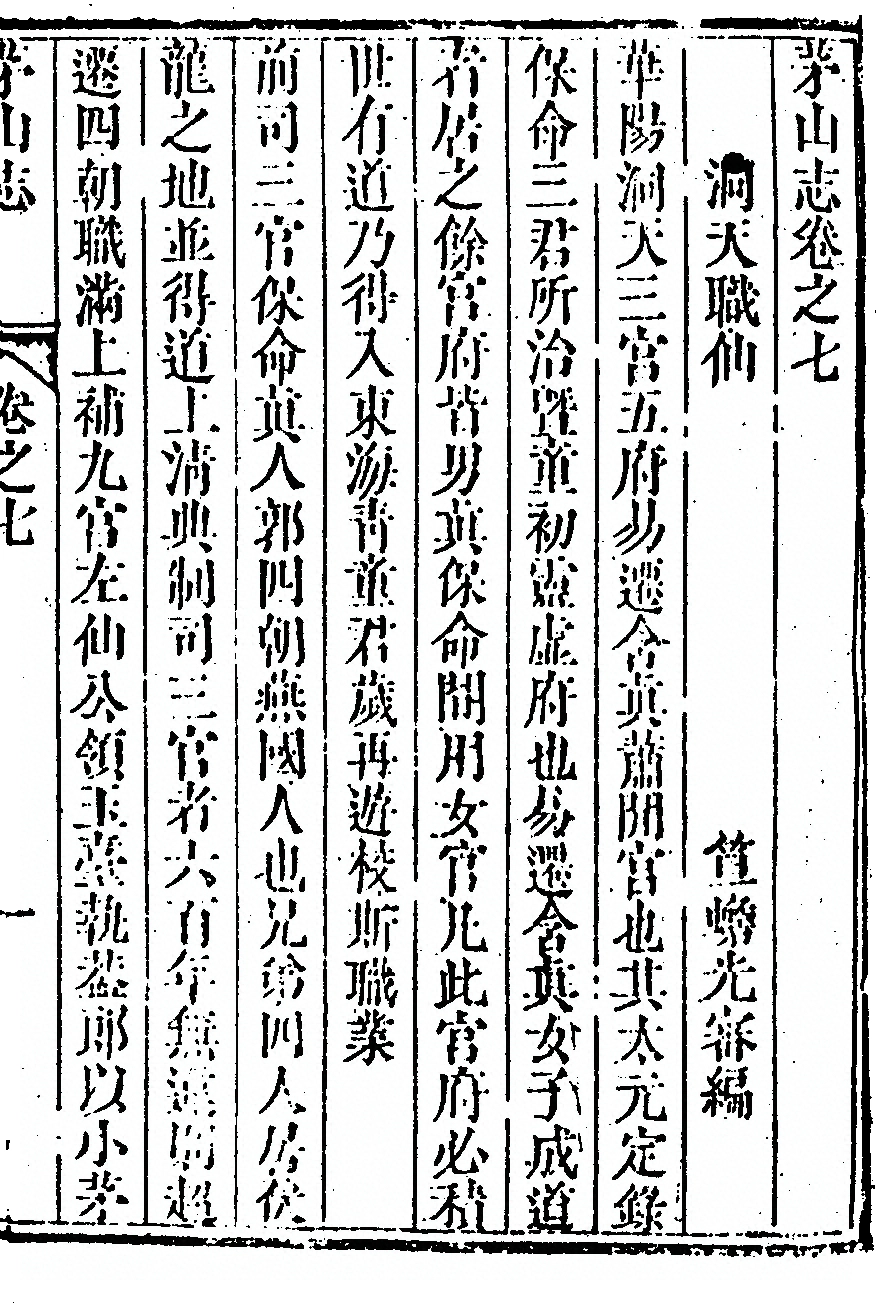 茅山志卷之七
洞天職仙　笪蟾光審編
華陽洞天三宮五府易遷含真蕭閒宮也其太元定錄
保命三君所治曁童初靈虛府也易遷含真女子成道
者居之餘宮府皆男真保命閒用女官凡此宮府必積
世有道乃得入東海青童君歲再遊校斯職業
前司三官保命真人郭四朝燕國人也兄弟四人居伏
龍之地並得道上清典制司三官者六百年無違則超
遷四朝職滿上補九宮左仙公領玉臺執葢郎以小茅
茅山志　卷之七　一